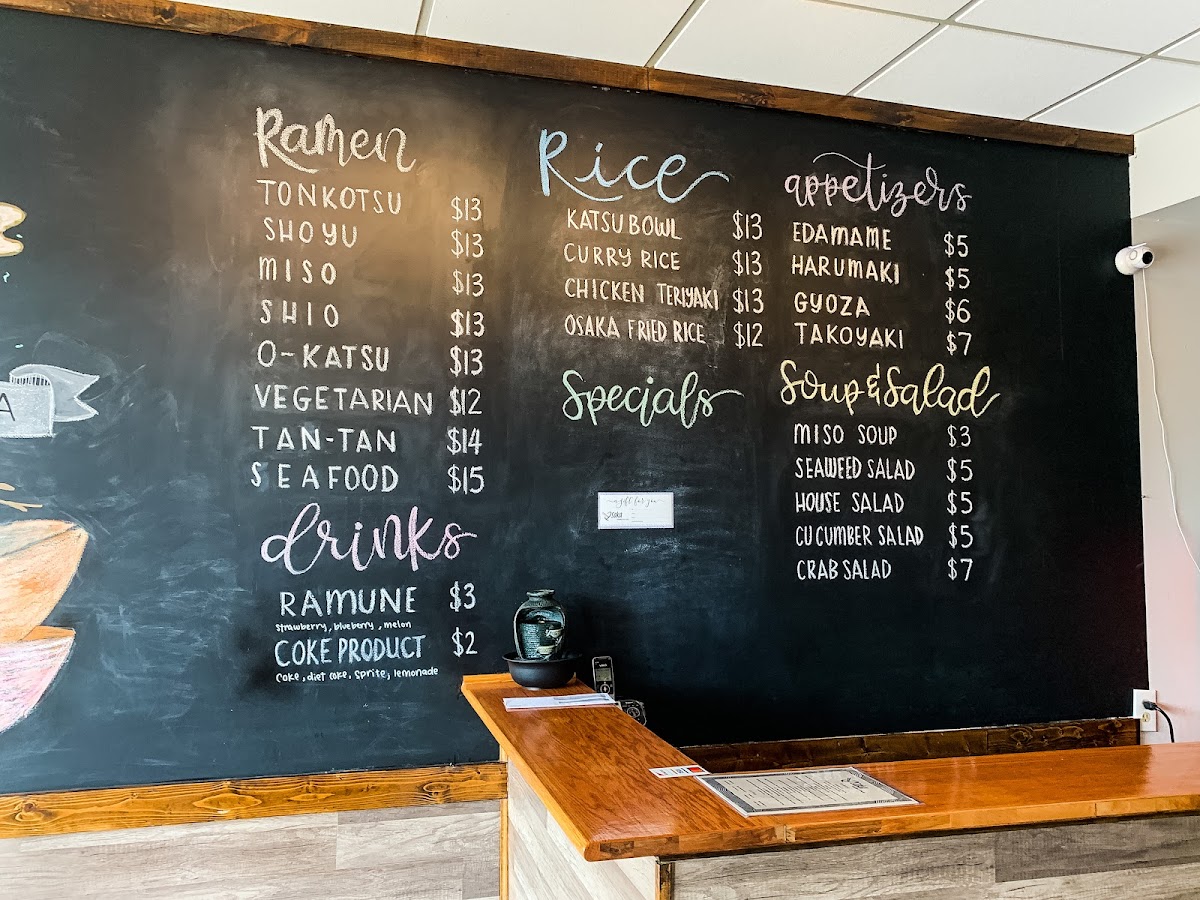 Ramen
TONKOTSU $13
SHOYU $13
MISO $13
SHIO $13
O-KATSU $13
VEGETARIAN $12
TAN-TAN $14
SEAFOOD $15
drinks
RAMUNE $3
strawberry, blueberry, melon
COKE PRODUCT $2
Coke, diet coke, sprite, lemonade
Rice
KATSU BOWL $13
CURRY RICE $13
CHICKEN TERIYAKI $13
OSAKA FRIED RICE $12
Specials
a gift for you
appetizers
EDAMAME $5
HARUMAKI $5
GYOZA $6
TAKOYAKI $7
Soup & Salad
MISO SOUP $3
SEAWEED SALAD $5
HOUSE SALAD $5
CUCUMBER SALAD $5
CRAB SALAD $7
A